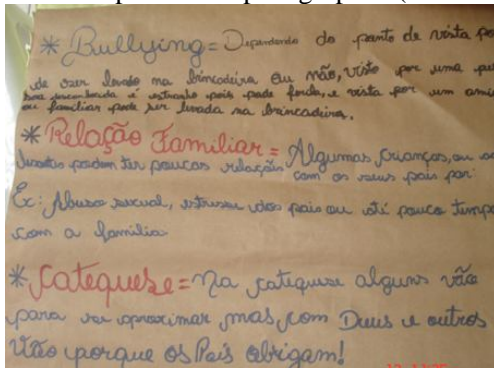 * Bullying = Dependendo do ponto de vista po
de ser levado na brincadeira ou não, visto por uma pes
soa desconhecida é estranho pois pode ferir, e vista por um ami
ou familiar pode ser levada na brincadeira.
* Relação Familiar = Algumas crianças, ou ado
lescentes podem ter poucas relações com os seus pais por:
Ex: Abuso sexual, estresse dos pais ou até pouco tempo
com a família
* Catequese = Na catequese alguns vão
para se aproximar mas com Deus e outros
Vão porque os Pais obrigam!